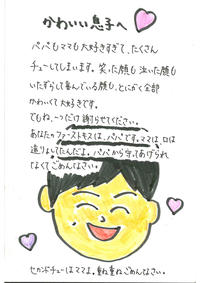 かわいい息子へ
パパもママも大好きすぎて、たくさん
チューしてしまいます。笑った顔も泣いた顔も
いたずらして喜んでいる顔も、とにかく全部
かわいくて大好きです。
でもね、一つだけ謝らせてください。
あなたのファーストキスは、パパです。ママは口は
避けてしてたんだよ。パパから守ってあげられ
なくてごめんなさい。
セカンドチューはママよ。重ね重ねごめんなさい。